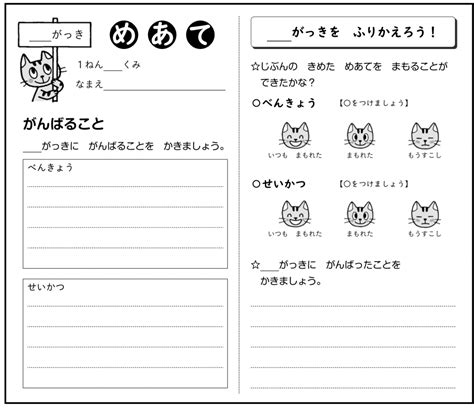 ___がっき
めあて
1ねん___くみ
なまえ
がんばること
___がっきに がんばることを かきましょう。
べんきょう
せいかつ
___がっきを ふりかえろう!
☆じぶんの きめた めあてを まもることが
できたかな?
○べんきょう 【○をつけましょう】
いつも まもれた まもれた もうすこし
○せいかつ 【○をつけましょう】
いつも まもれた まもれた もうすこし
☆___がっきに がんばったことを
かきましょう。